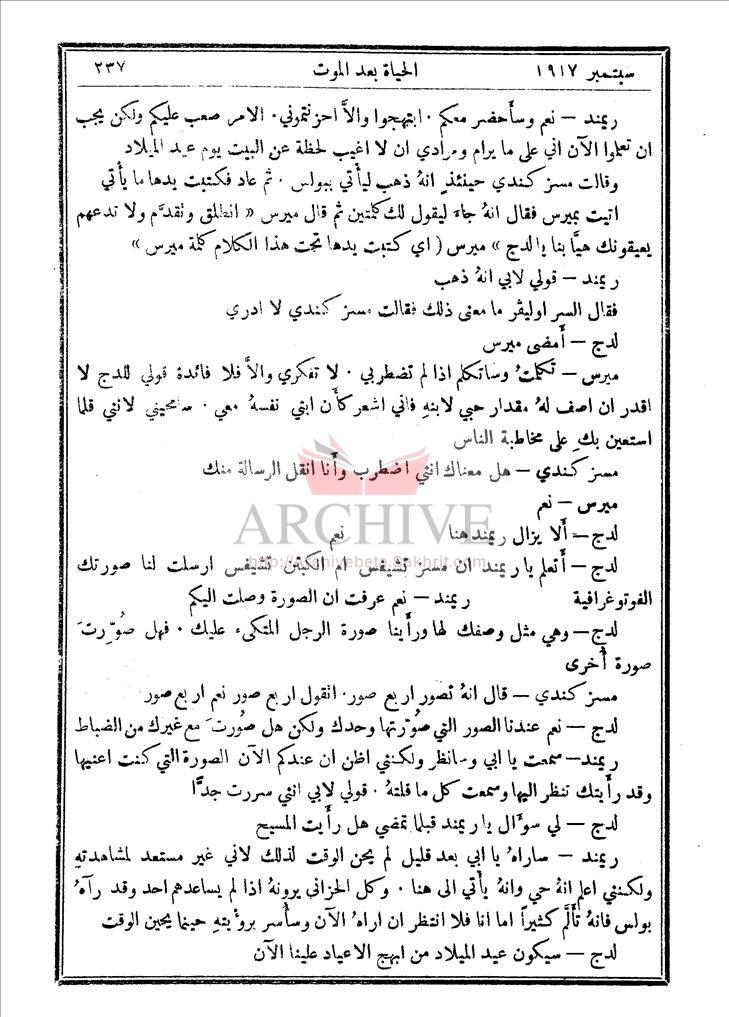 سبتمبر ١٩١٧ الحياة بعد الموت ٢٣٧
ريمند — نعم وسأحضر معكم . ابتهجوا والاَّ احزنتموني. الامر صعب عليكم ولكن يجب
ان تعملوا الآن اني على ما يرام ومرادي ان لا اغيب لحظة عن البيت يوم عيد الميلاد
وقالت مسز كندي حينئذٍ انهُ ذهب ليأتي ببولس . ثم عاد فكتبت يدها ما يأتي
اتيت بميرس فقال انهُ جاءَ ليقول لك كلمتين ثم قال ميرس « انطلق وتقدَّم ولا تدعهم
يعيقونك هيَّا بنا يا لدج » ميرس ( اي كتبت يدها تحت هذا الكلام كلمة ميرس »
ريمند — قولي لابي انهُ ذهب
فقال السر اوليڤر ما معنى ذلك فقالت مسز كندي لا ادري
لدج — أَمضى ميرس
ميرس — تكلمتُ وساتكلم اذا لم تضطربي . لا تفكري والاَّ فلا فائدة قولي للدج لا
اقدر ان اصف لهُ مقدار حبي لابنهِ فاني اشعر كأَن ابني نفسهُ معي . سامحيني لانني قلما
استعين بكِ على مخاطبة الناس
مسز كندي — هل معناك انني اضطرب وأَنا انقل الرسالة منك
ميرس — نعم
لدج — أَلا يزال ريمند هنا نعم
ARCHIVE
http://Archivebeta.Sakhrit.com
لدج — أَتعلم يا ريمند ان مسز تشيفس ام الكبتن تشيفس ارسلت لنا صورتك
الفوتوغرافية ريمند — نعم عرفت ان الصورة وصلت اليكم
لدج — وهي مثل وصفك لها ورأَينا صورة الرجل المتكىء عليك . فهل صُوّرتَ
صورة أُخرى
مسز كندي — قال انهُ تصور اربع صور. انقول اربع صور نعم اربع صور
لدج — نعم عندنا الصور التي صوّرتها وحدك ولكن هل صُورتَ مع غيرك من الضباط
ريمند — سمعت يا ابي وسانظر ولكنني اظن ان عندكم الآن الصورة التي كنت اعنيها
وقد رأَيتك تنظر اليها وسمعت كل ما قلتهُ . قولي لابي انني سررت جدًّا
لدج — لي سوَّال يا ريمند قبلما تمضي هل رأَيت المسيح
ريمند — ساراهُ يا ابي بعد قليل لم يحن الوقت لذلك لاني غير مستعد لمشاهدتهِ
ولكنني اعلم انهُ حي وانهُ يأْتي الى هنا . وكل الحزانى يرونهُ اذا لم يساعدهم احد وقد رآهُ
بولس فانهُ تأَلَّم كثيراً اما انا فلا انتظر ان اراهُ الآن وسأُسر برؤْيتهِ حينما يحين الوقت
لدج — سيكون عيد الميلاد من ابهج الاعياد علينا الآن